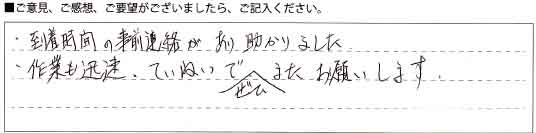 ■ご意見、ご感想、ご要望がございましたら、ご記入ください。
・到着時間の事前連絡があり助かりました
・作業も迅速、ていねいでぜひまたお願いします.